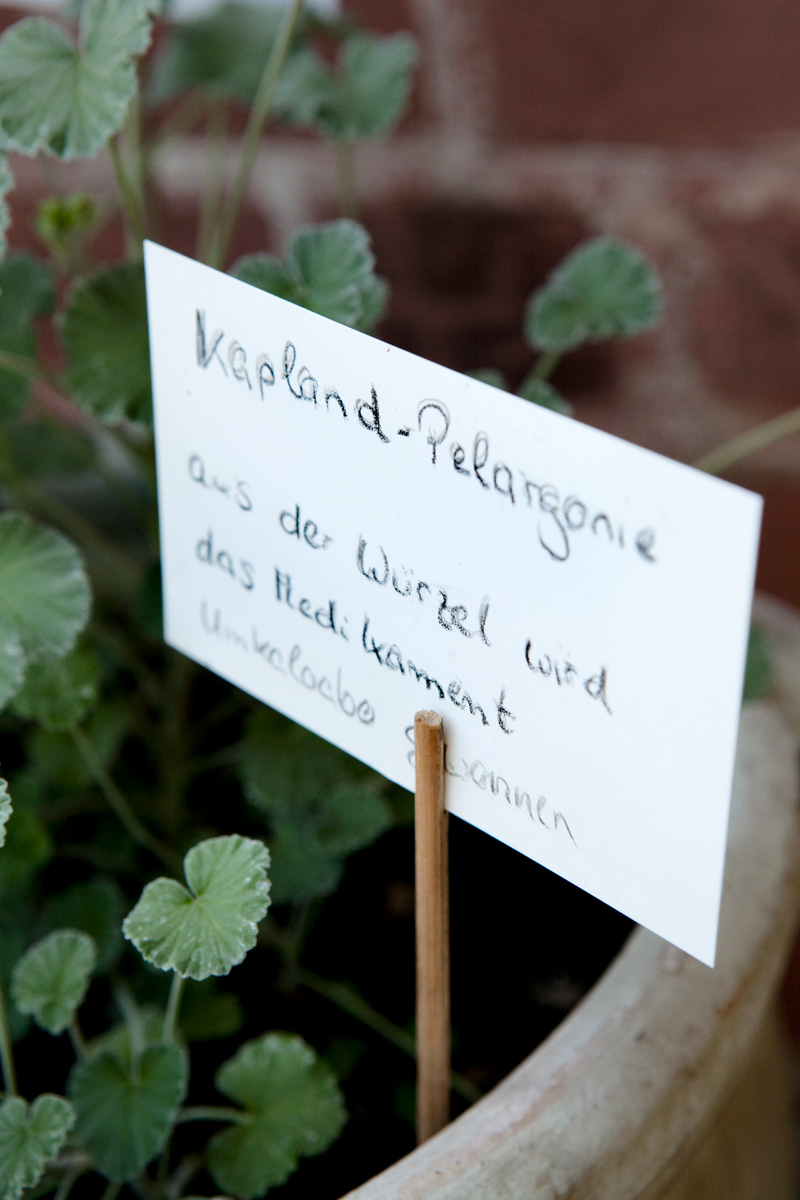 Kapland-Pelargonie
aus der Würzel wird
das Medikament
Umkaloabo gewonnen